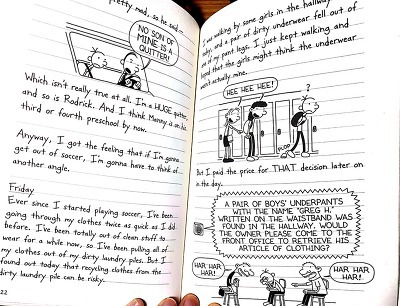 pretty mad, so he said—
NO SON OF
MINE IS A
QUITTER!
Which isn't really true at all. I'm a HUGE quitter,
and so is Rodrick. And I think Manny is on his
third or fourth preschool by now.
Anyway, I got the feeling that if I'm gonna
get out of soccer, I'm gonna have to think of
another angle.
Friday
Ever since I started playing soccer, I've been
going through my clothes twice as quick as I did
before. I've been totally out of clean stuff to
wear for a while now, so I've been pulling all of
my clothes out of my dirty laundry piles. But I
found out today that recycling clothes from the
dirty laundry pile can be risky.
22
I was walking by some girls in the hallway
today, and a pair of dirty underwear fell out of
one of my pant legs. I just kept walking and
hoped that the girls might think the underwear
wasn't actually mine.
HEE HEE HEE!
?
PLOP
But I paid the price for THAT decision later on
in the day.
A PAIR OF BOYS' UNDERPANTS
WITH THE NAME "GREG H."
WRITTEN ON THE WAISTBAND WAS
FOUND IN THE HALLWAY. WOULD
THE OWNER PLEASE COME TO THE
FRONT OFFICE TO RETRIEVE HIS
ARTICLE OF CLOTHING?
HAR HAR
HAR!
HAR HAR
HAR!